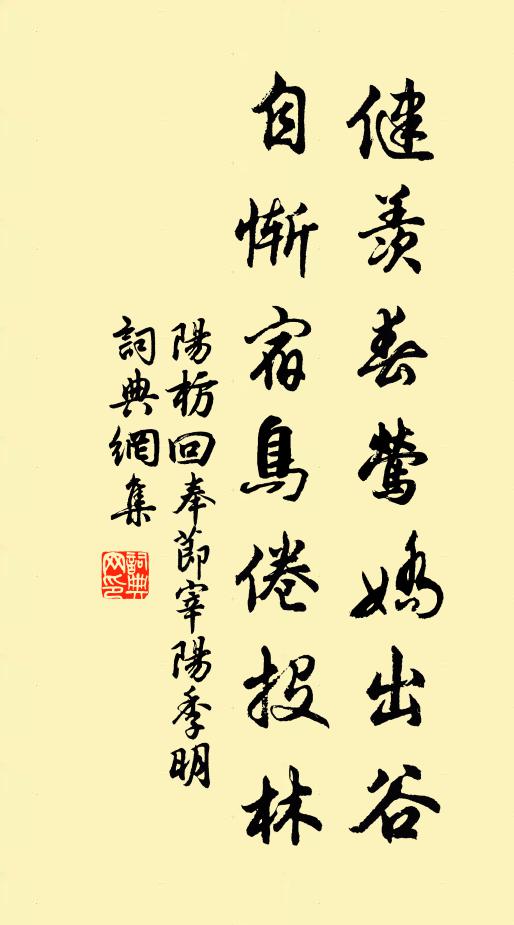 健羨春鶯嬌出谷
自慚宿鳥倦投林
陽枋回奉節宰陽季明
詞典網集
詞典
网印